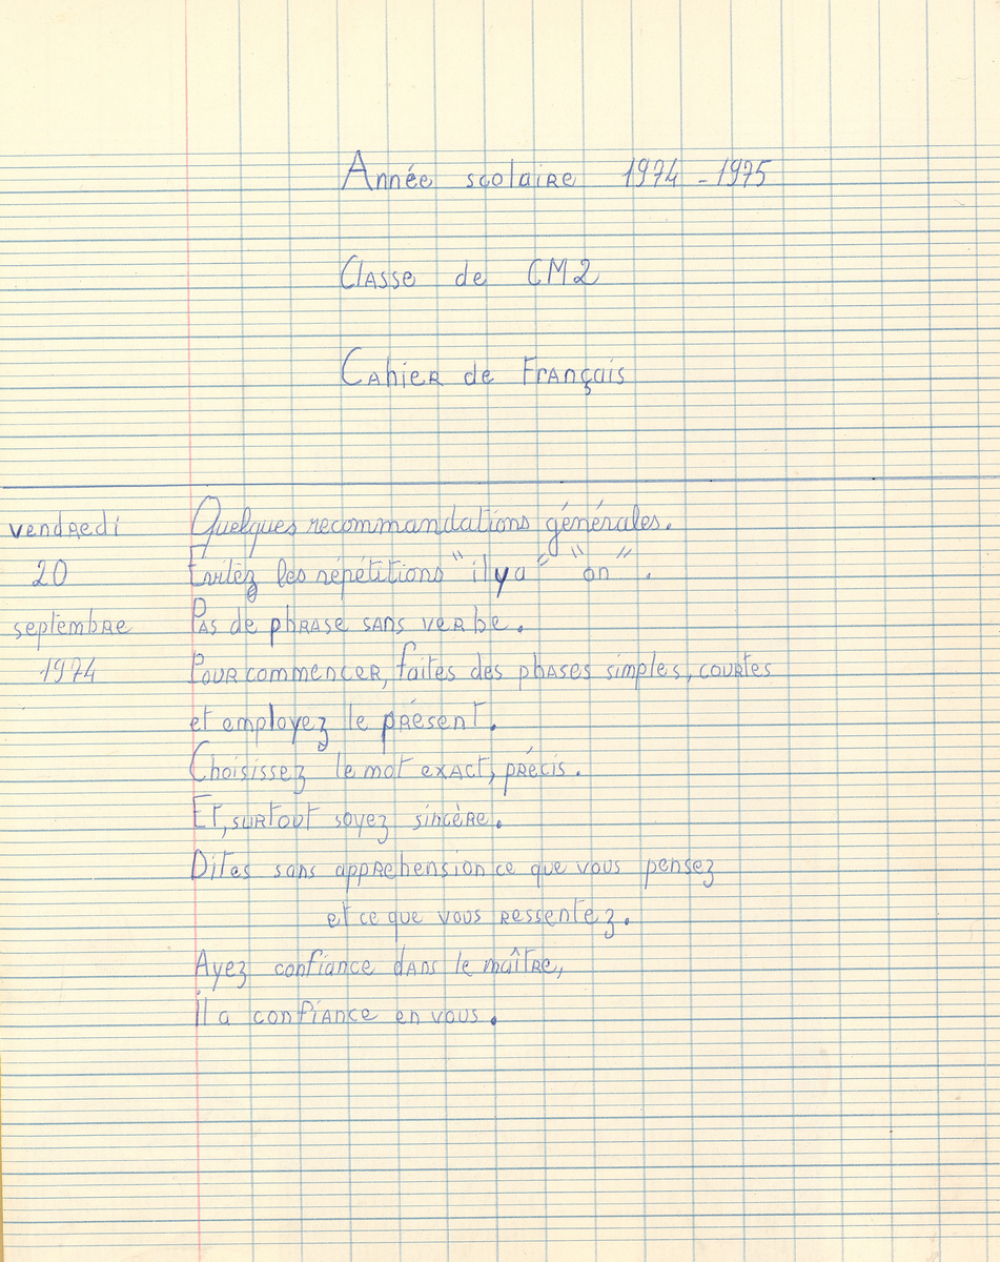 Année scolaire 1974-1975
Classe de CM2
Cahier de Français
vendredi Quelques recommandations générales.
20 Evitez les répétitions "il y a" "on".
septembre Pas de phrase sans verbe.
1974 Pour commencer, faites des phases simples, courtes
et employez le présent.
Choisissez le mot exact, précis.
Et, surtout soyez sincère.
Dites sans apprehension ce que vous pensez
et ce que vous ressentez.
Ayez confiance dans le maître,
il a confiance en vous.